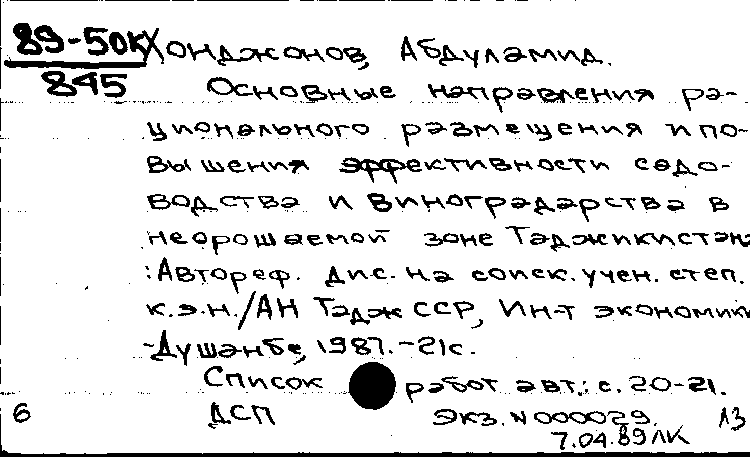 89-50К
845
Хонджонов, Абдуламид.
Основные направления ра-
ционального размещения и по-
вышения эффективности садо-
водства и виноградарства в
неорошаемой зоне Таджикистана
: Автореф. дис. на соиск. учен. степ.
к.э.н./АН Тадж ССР, Ин-т экономики
-Душанбе, 1987.-21с.
Список работ авт.: с. 20-21.
6 ДСП Экз. N 000029. А3
7.04.89 ЛК